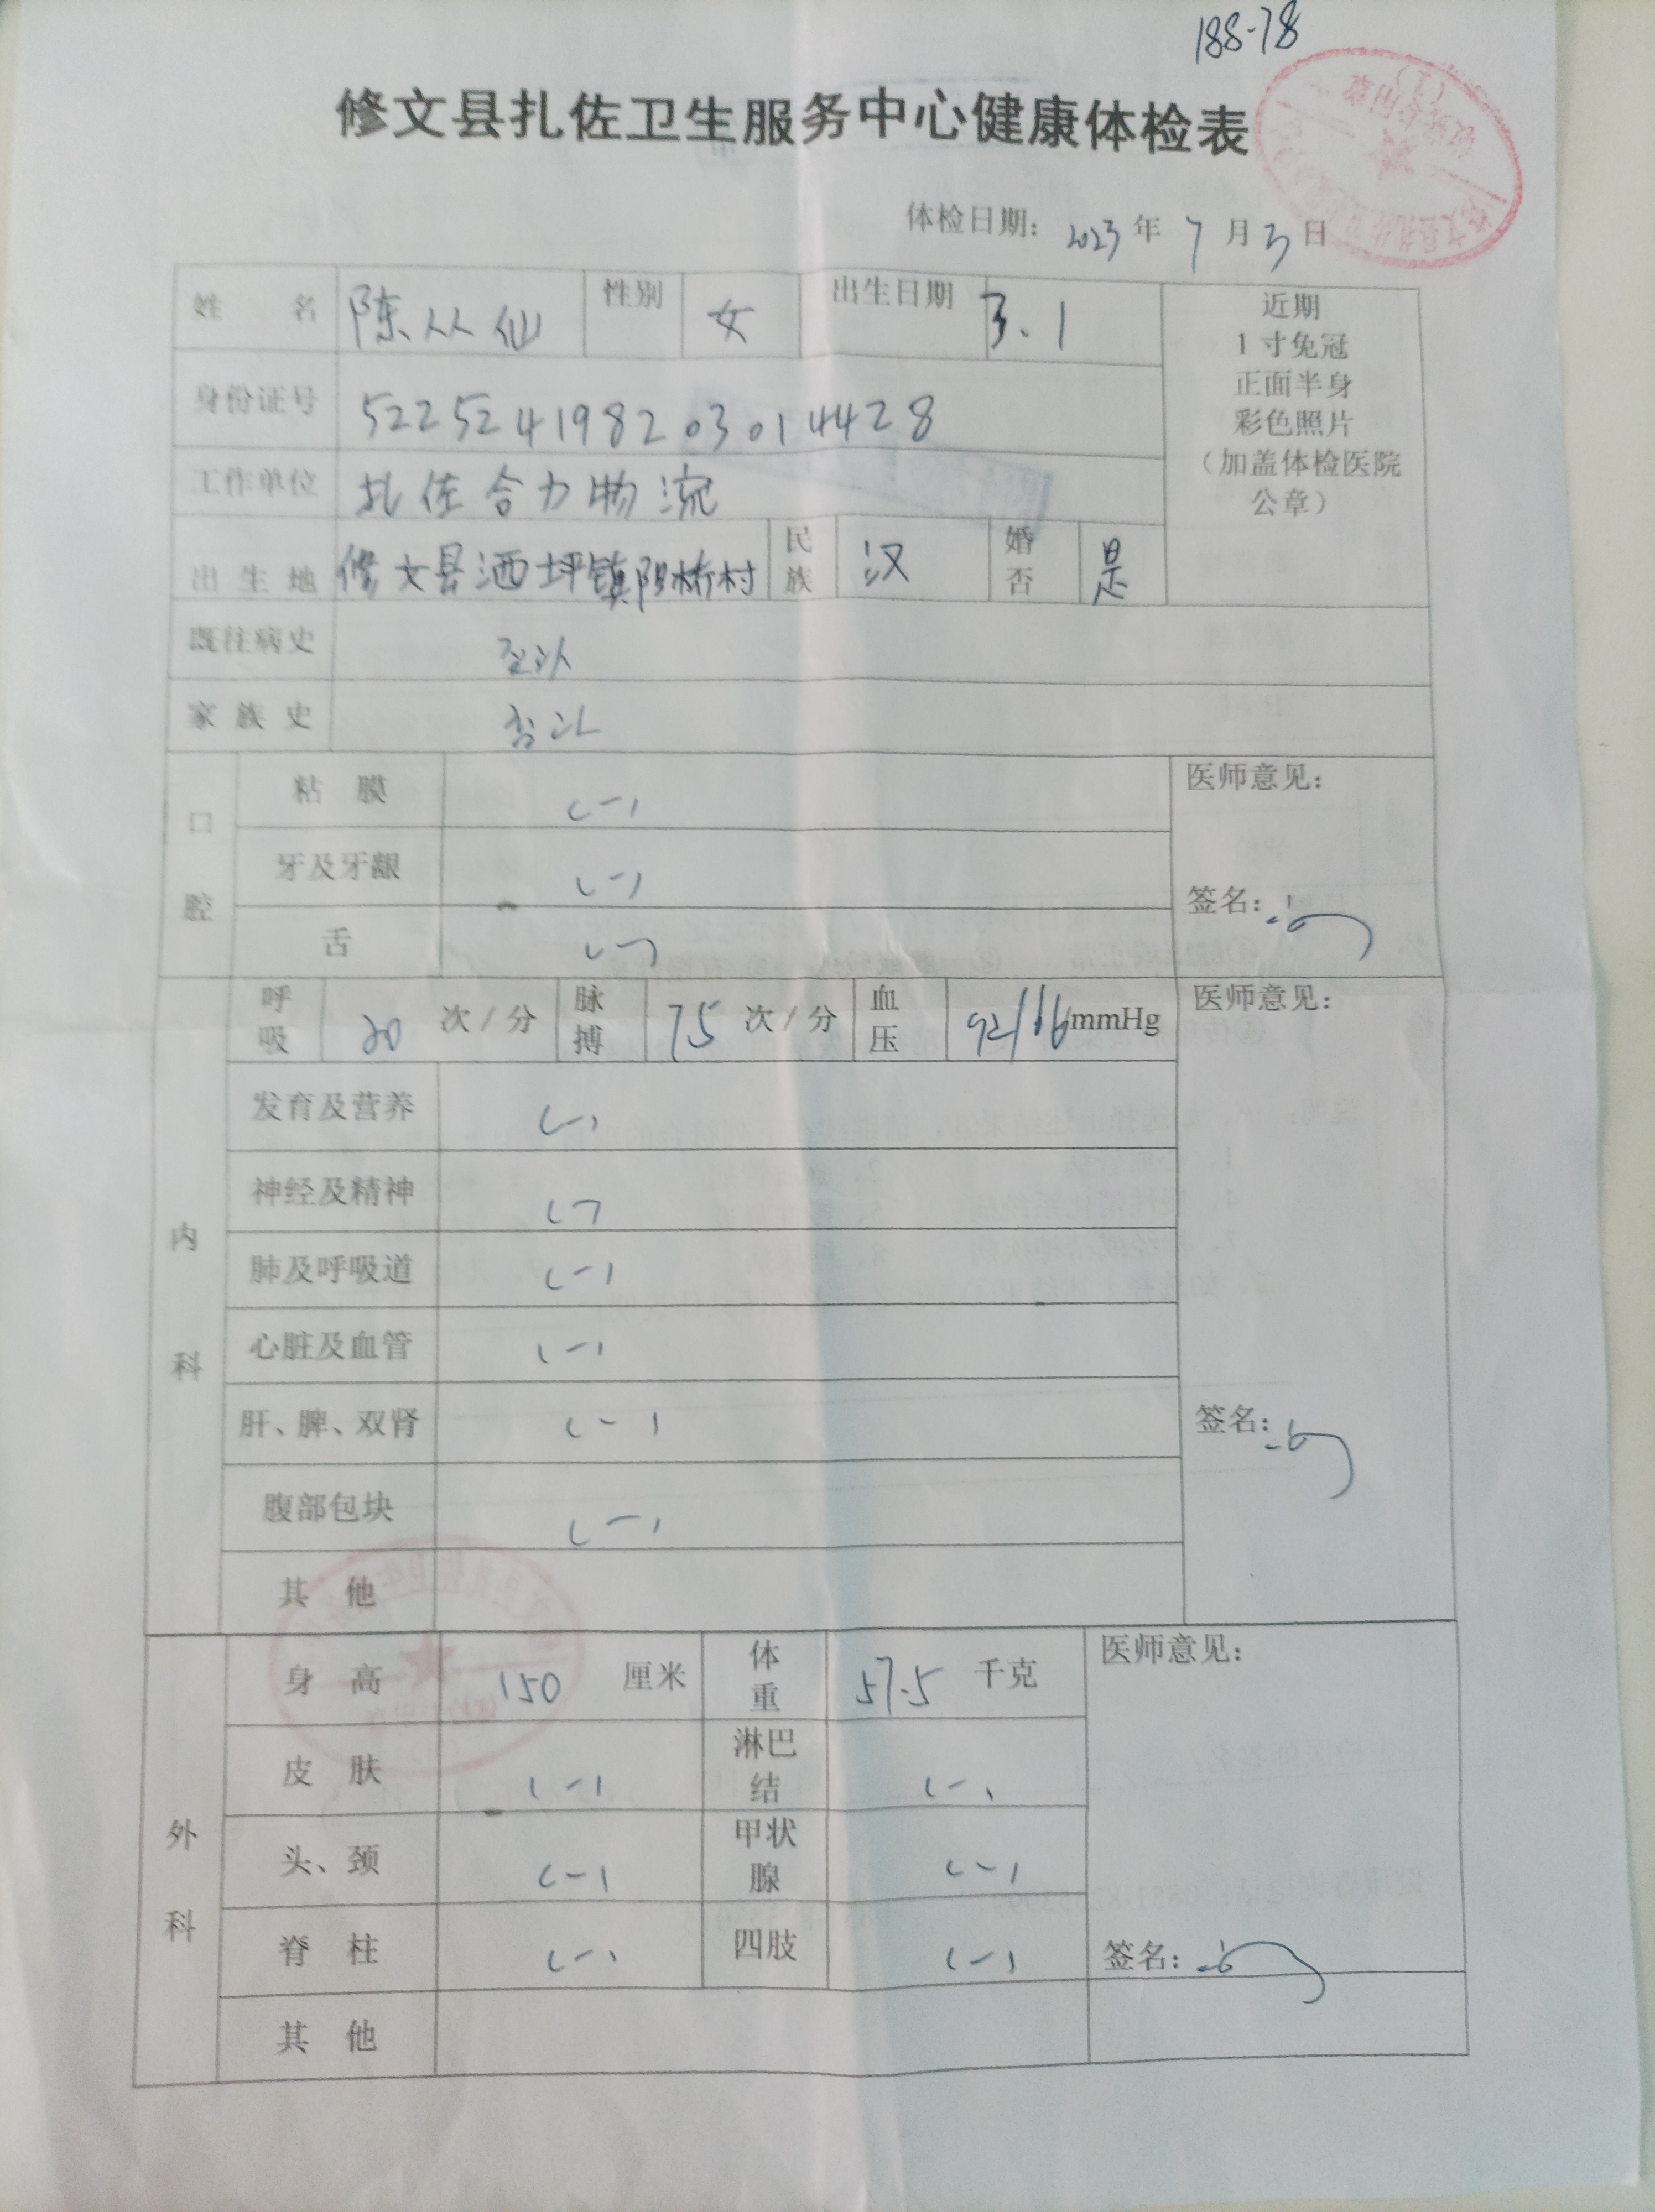 188-78
修文县扎佐卫生服务中心健康体检表
体检日期: 2023 年 7 月 3 日
姓 名 陈从仙 性别 女 出生日期 3.1
近期
1寸免冠
正面半身
彩色照片
(加盖体检医院
公章)
身份证号 522524198203014428
工作单位 扎佐合力物流
出生地 修文县洒坪镇 桥村 民族 汉 婚否 是
既往病史 否认
家族史 否认
口腔
粘膜 (-)
医师意见:
牙及牙龈 (-)
签名:
舌 (-)
内科
呼吸 20 次/分 脉搏 75 次/分 血压 92/66 mmHg
医师意见:
发育及营养 (-)
神经及精神 (-)
肺及呼吸道 (-)
心脏及血管 (-)
肝、脾、双肾 (-)
签名:
腹部包块 (-)
其他
外科
身高 150 厘米 体重 57.5 千克
医师意见:
皮肤 (-) 淋巴结 (-)
头、颈 (-) 甲状腺 (-)
脊柱 (-) 四肢 (-)
签名:
其他